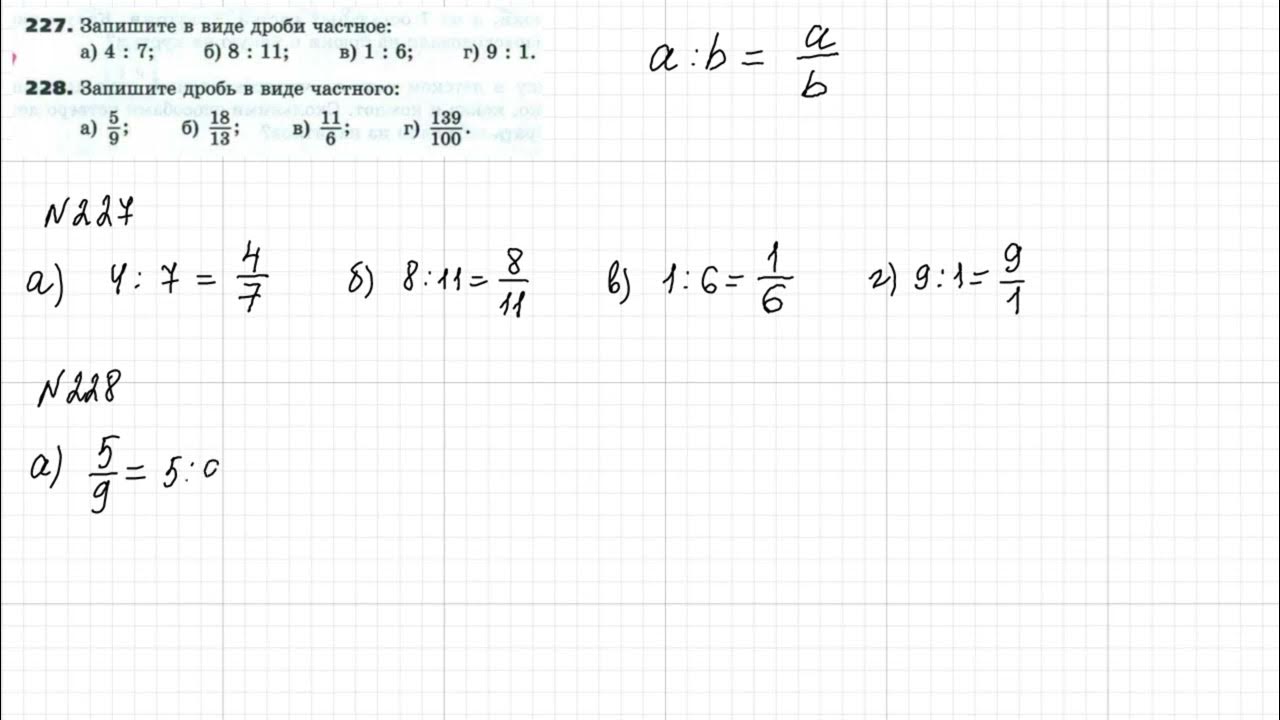 227. Запишите в виде дроби частное:
а) 4 : 7; б) 8 : 11; в) 1 : 6; г) 9 : 1.
228. Запишите дробь в виде частного:
а) 5/9; б) 18/13; в) 11/6; г) 139/100.
a : b = a/b
№227
а) 4 : 7 = 4/7 б) 8 : 11 = 8/11 в) 1 : 6 = 1/6 г) 9 : 1 = 9/1
№228
а) 5/9 = 5 :